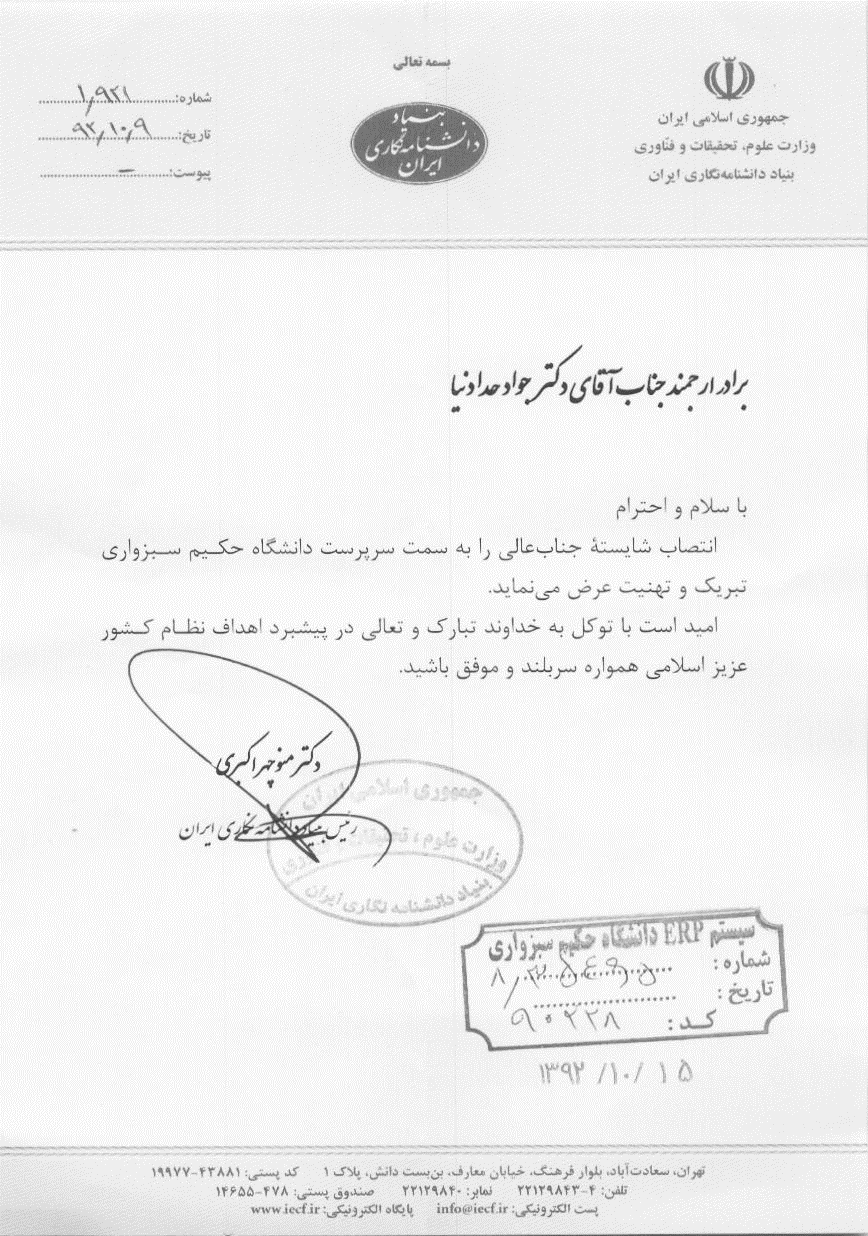 بسمه تعالی
جمهوری اسلامی ایران
وزارت علوم، تحقیقات و فنّاوری
بنیاد دانشنامه‌نگاری ایران
بنیاد
دانشنامه‌نگاری
ایران
شماره: ۱٫۹۲۱
تاریخ: ۹۲٫۱۰٫۹
پیوست: –
برادر ارجمند جناب آقای دکتر جواد حدادنیا
با سلام و احترام
انتصاب شایستهٔ جناب‌عالی را به سمت سرپرست دانشگاه حکیم سبزواری
تبریک و تهنیت عرض می‌نماید.
امید است با توکل به خداوند تبارک و تعالی در پیشبرد اهداف نظام کشور
عزیز اسلامی همواره سربلند و موفق باشید.
دکتر منوچهر اکبری
رئیس بنیاد دانشنامه نگاری ایران
جمهوری اسلامی ایران
وزارت علوم، تحقیقات
بنیاد دانشنامه نگاری ایران
سیستم ERP دانشگاه حکیم سبزواری
شماره:
تاریخ:
کد: ۹۰۲۲۸
۱۳۹۲/۱۰/۱۵
تهران، سعادت‌آباد، بلوار فرهنگ، خیابان معارف، بن‌بست دانش، پلاک ۱ کد پستی: ۴۳۸۸۱-۱۹۹۷۷
تلفن: ۴-۲۲۱۲۹۸۴۳ نمابر: ۲۲۱۲۹۸۴۰ صندوق پستی: ۴۷۸-۱۴۶۵۵
پست الکترونیکی: info@iecf.ir پایگاه الکترونیکی: www.iecf.ir